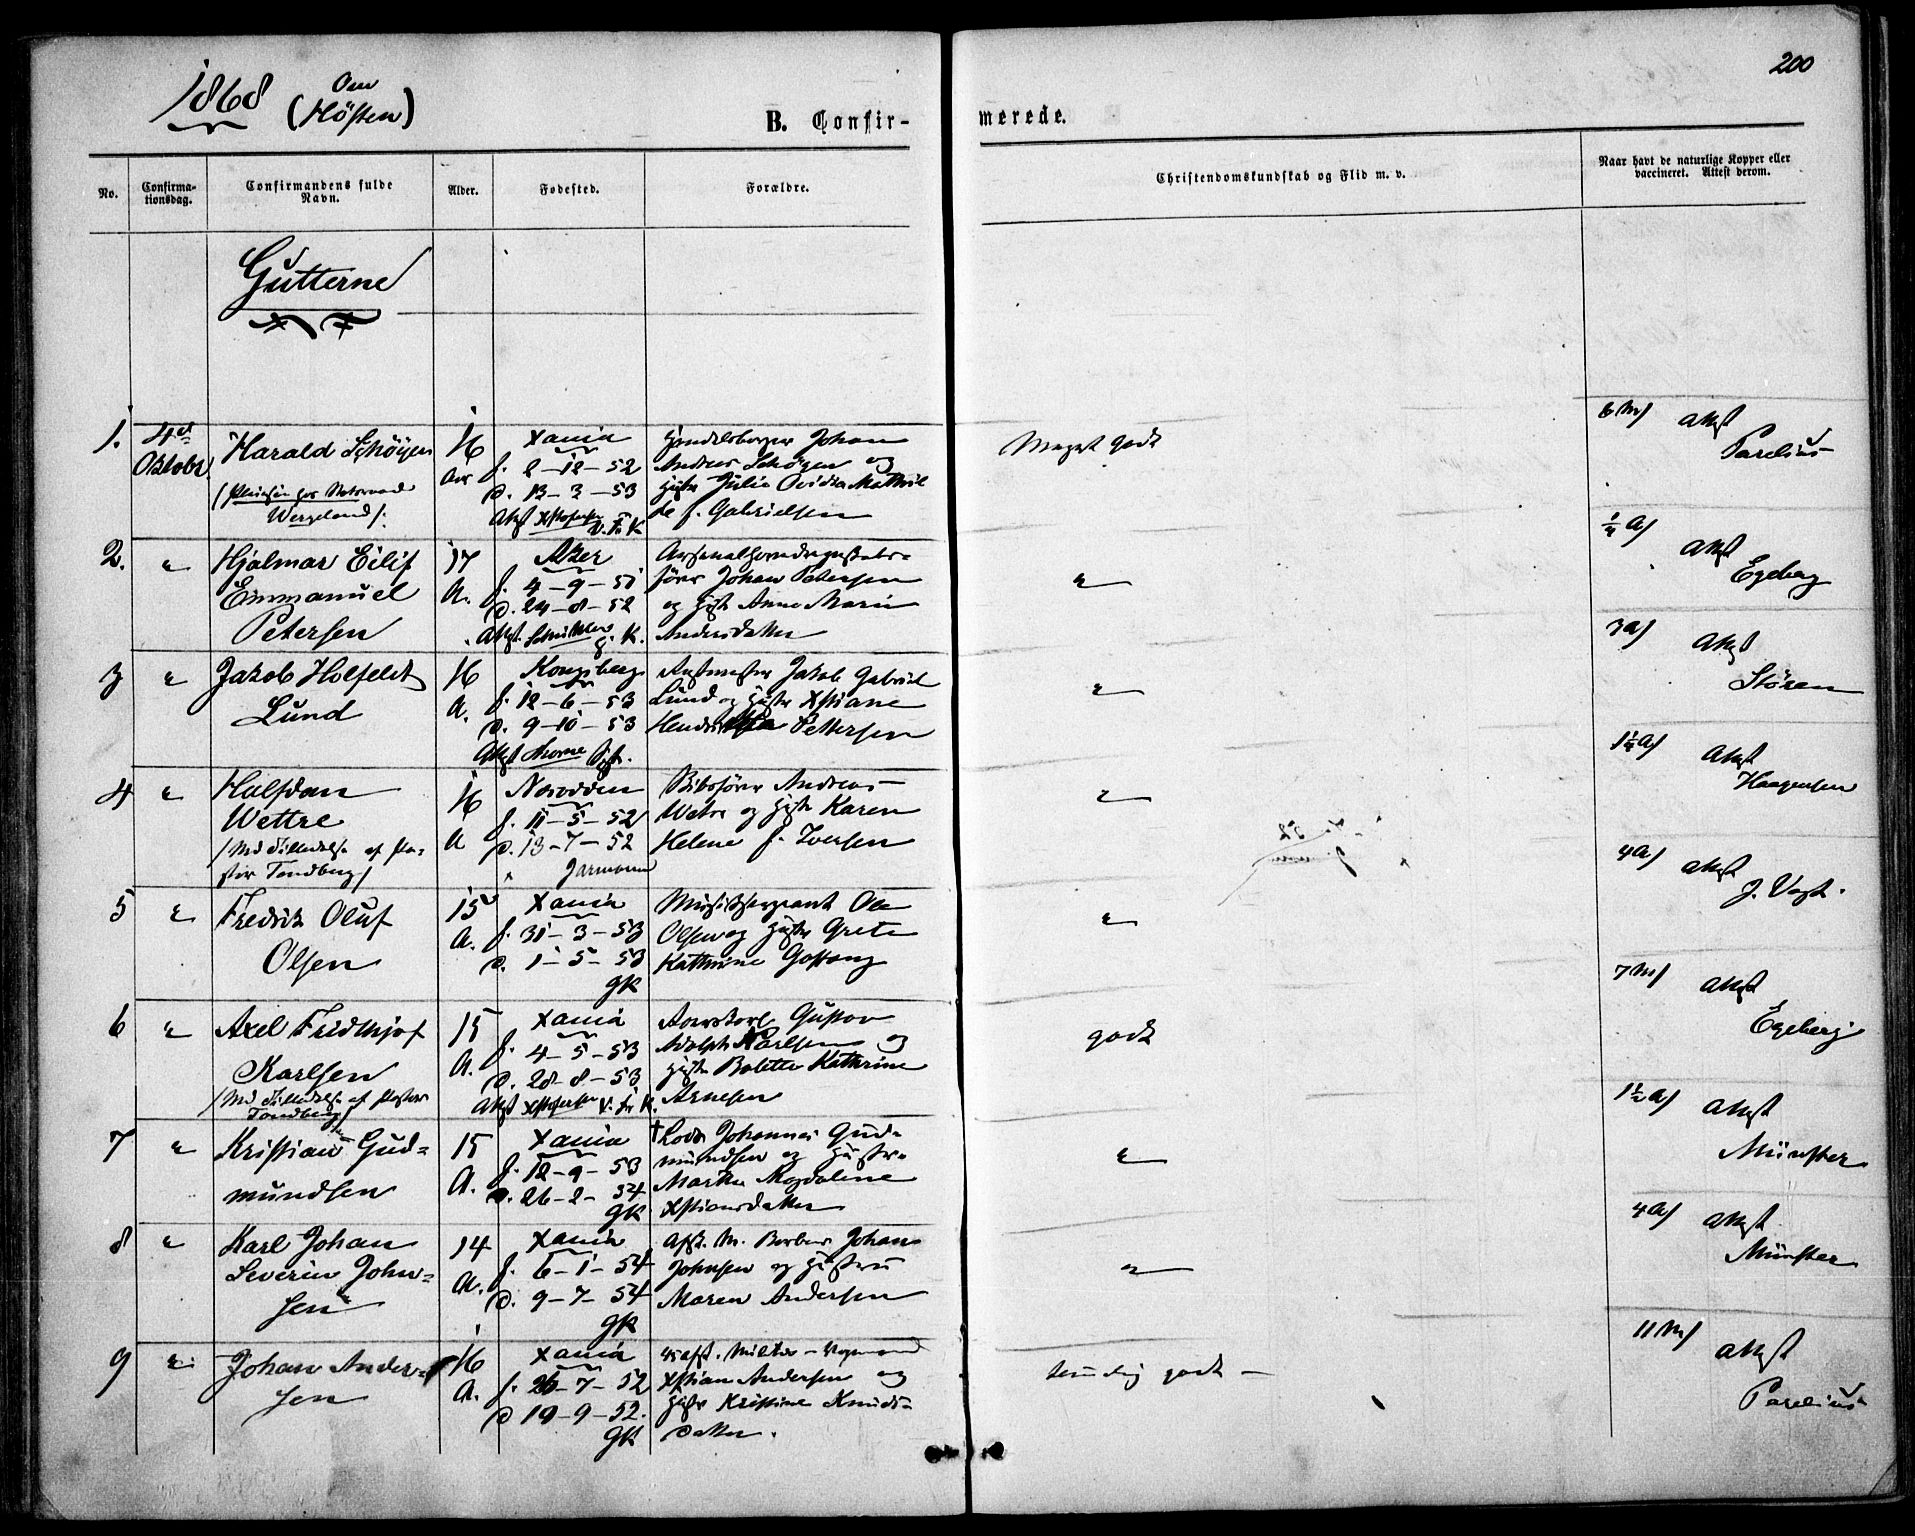 200
1868 (Om Høsten)
B. Confir- merede.
No.
Confirma-
tionsdag.
Confirmandens fulde
Navn.
Alder.
Fødested.
Forældre.
Christendomskundskab og Flid m. v.
Naar havt de naturlige Kopper eller
vaccineret. Attest derom.
Gutterne
1.
4de
Oktober
Harald Schøyen
Wergeland
16
Aar
Xania
f. 2-12-52
d. 13-3-53
Johan
Andreas Schøyen og
Hustr Julie Ovidia Mathil
de f. Gabrielsen
Meget godt
6 M/ Attest
Parelius
2.
"
Hjalmar Eilif
Emmanuel
Petersen
17
A.
Aker
f. 4-9-51
d. 24-8-52
Johan Petersen
og Hustr Anne Marie
Andersdatter
"
½ A/ Attest
Egeberg
3
"
Jakob Holfeldt
Lund
16
A.
Kongsberg
f. 12-6-53
d. 9-10-53
Jakob Gabriel
Lund og Hustr Xstiane
Pettersen
"
3 A/ Attest
Støren
4
"
Halfdan
Wettre
/Med Tilladelse af Pa-
stor Tandberg/
16
A
Norodden
f. 11-5-52
d. 13-7-52
Jarmann
Andreas
Wetre og Hustr Karen
Helene f. Iversen
"
1½ A/ Attest
Haagensen
5
"
Fredrik Oluf
Olsen
15
A.
Xania
f. 31-3-53
d. 1-5-53
GK
Ole
Olsen og Hustr Grete
Kathrine
"
4 A/ Attest
J. Vogt.
6
"
Axel Fridthjof
Karlsen
/Med Tilladelse af Pastor
Tandberg/
15
A.
Xania
f. 4-5-53
d. 28-8-53
Gustav
Adolph Karlsen og
Hustr Bolette Kathrine
Arnesen
godt
7 M/ Attest
Egeberg
7
"
Kristian Gud-
mundsen
15
A.
Xania
f. 12-9-53
d. 26-2-54
GK
† Lods Johannes Gud-
mundsen og Hustr
Marthe Magdalene
Xstiansdatter
"
1½ A/ Attest
Münster
8
"
Karl Johan
Severin John-
sen
14
A.
Xania
f. 6-1-54
d. 9-7-54
GK
Johan
Johnsen og Hustru
Maren Andersen
"
4 A/ Attest
Münster
9
"
Johan Ander-
sen
16
A.
Xania
f. 26-7-52
d 19-9-52.
GK
Xstian Andersen og
Hustr Kristine Knuds-
datter.
temmelig godt
11 M/ Attest
Parelius